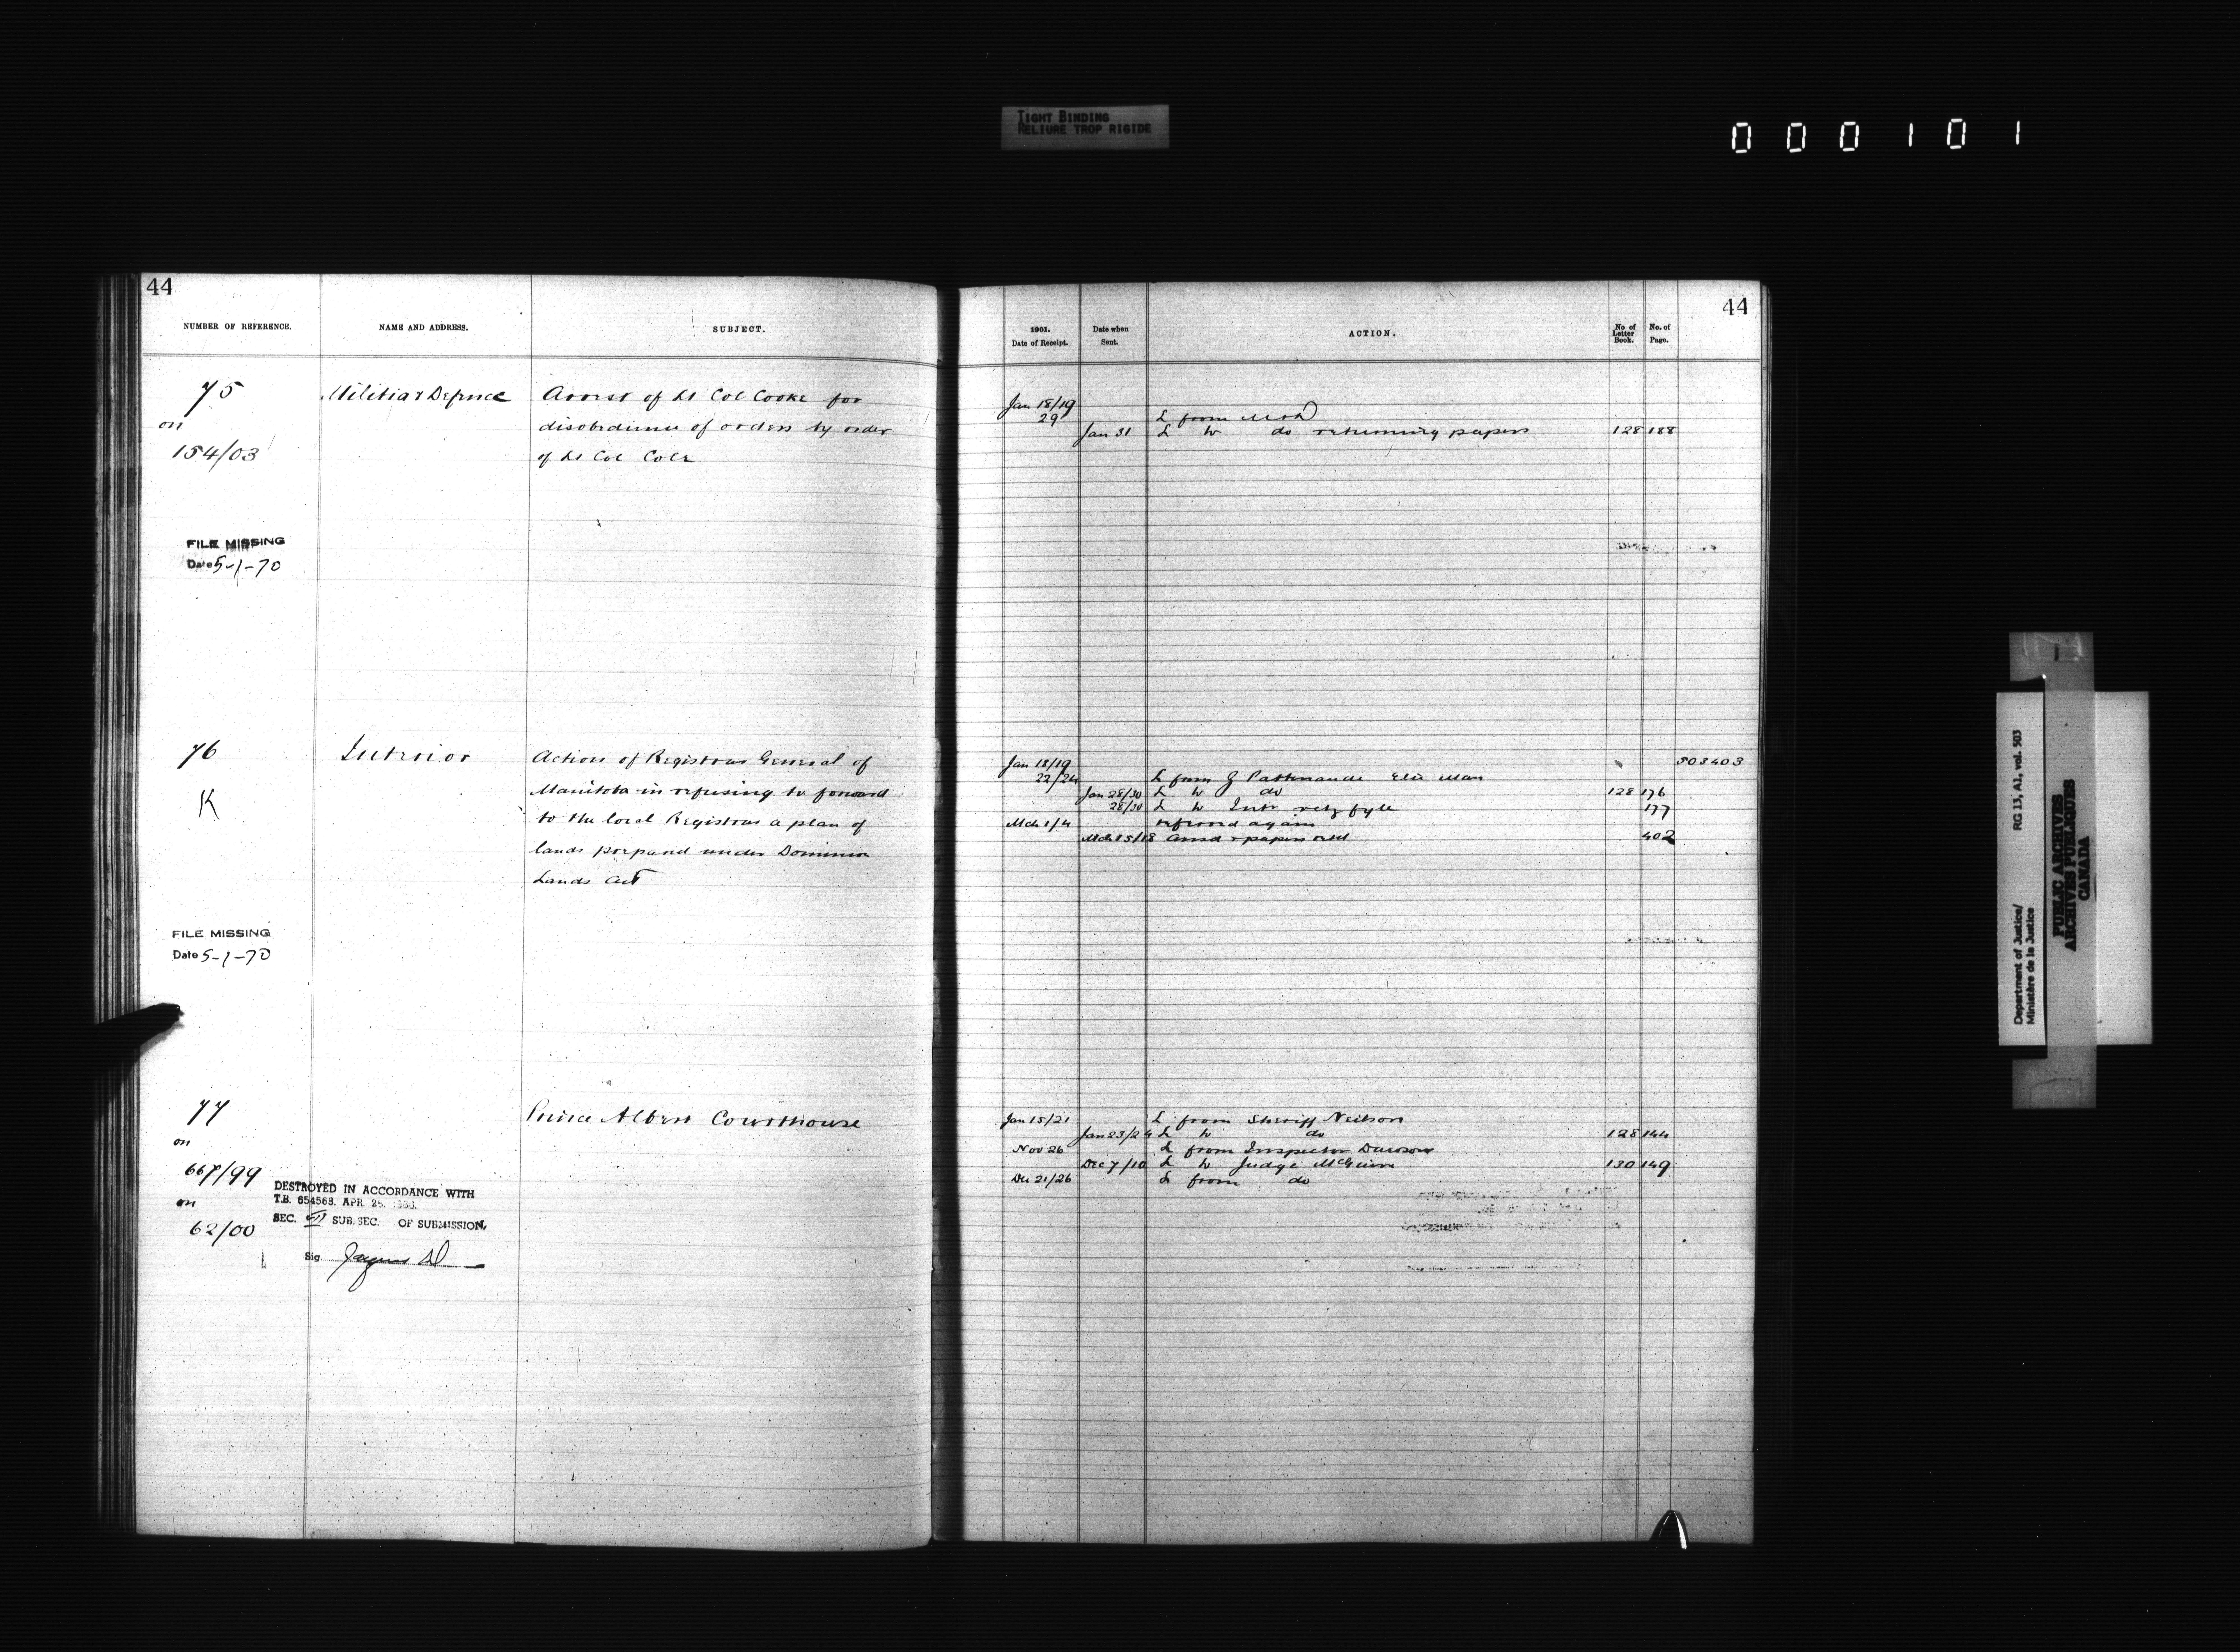 TIGHT BINDING
RELIURE TROP RIGIDE
000101
44
NUMBER OF REFERENCE.
NAME AND ADDRESS.
SUBJECT.
75
on
154/03
Militia & Defence
Arrest of Lt Col Cooke for
disobedience of orders by order
of Lt Col Cole
FILE MISSING
Date 5-1-70
76
K
Interior
Action of Registrar General of
Manitoba in refusing to forward
to the local Registrar a plan of
lands prepared under Dominion
Lands Act
FILE MISSING
Date 5-1-70
77
on
667/99
on
62/00
Prince Albert Courthouse
DESTROYED IN ACCORDANCE WITH
T.B. 654563. APR. 25,
SEC. VII SUB. SEC. OF SUBMISSION,
Sig.
44
1901.
Date of Receipt.
Date when
Sent.
ACTION.
No of
Letter
Book.
No. of
Page.
Jan 18/19
29 L from M & D
Jan 31 L to do returning papers 128 188
Jan 18/19 503403
22/24 L from
Jan 28/30 L to do 128 176
28/30 L to Intr retg fyle 177
Mch 1/4 referred again
Mch 15/18 ansd & papers retd 402
Jan 15/21 L from Sheriff Neilson
Jan 23/24 L to do 128 144
Nov 26 L from Inspector Dawson
Dec 7/10 L to Judge McGuire 130 149
Dec 21/26 L from do
RG 13, A1, vol. 503
Department of Justice/
Ministère de la Justice
PUBLIC ARCHIVES
ARCHIVES PUBLIQUES
CANADA